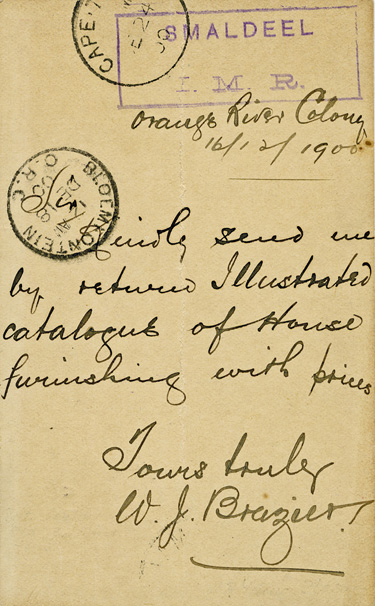 CAPE
SMALDEEL
I. M. R.
Orange River Colony
16/12/1900
BLOEMFONTEIN
O.R.C.
Kindly send me
by return Illustrated
catalogue of House
furnishing with prices
Yours truly
W. J. Brazier